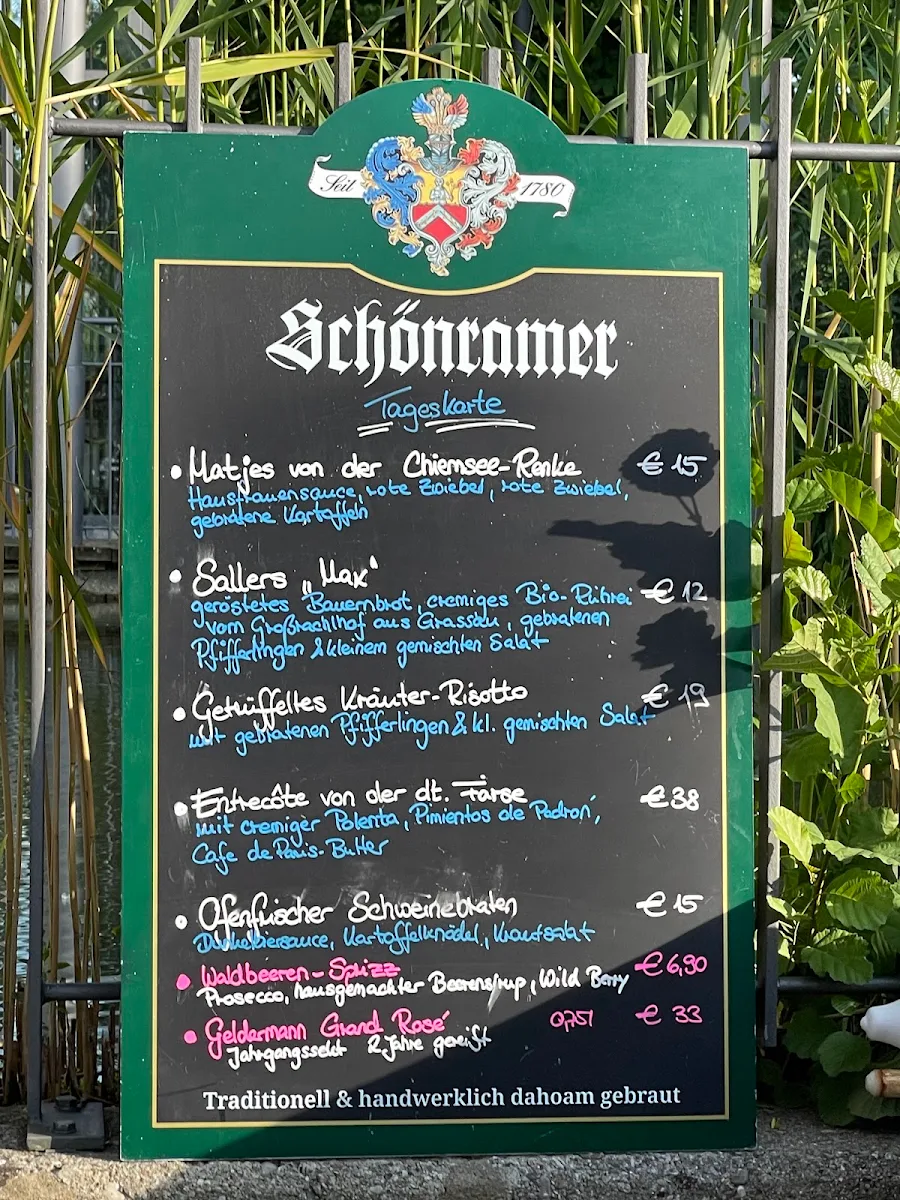 Seit 1780
Schönramer
Tageskarte
• Matjes von der Chiemsee-Renke € 15
Hausfrauensauce, rote Zwiebel, rote Zwiebel,
gebratene Kartoffeln
• Sallers „Max“
geröstetes Bauernbrot, cremiges Bio-Rührei € 12
vom Großrachlhof aus Grassau, gebratenen
Pfifferlingen & kleinem gemischten Salat
• Getrüffeltes Kräuter-Risotto € 19
mit gebratenen Pfifferlingen & kl. gemischten Salat
• Entrecôte von der dt. Färse € 38
mit cremiger Polenta, Pimientos de Padron´,
Cafe de Paris-Butter
• Ofenfrischer Schweinebraten € 15
Dunkelbiersauce, Kartoffelknödel, Krautsalat
• Waldbeeren-Spizz € 6,90
Prosecco, hausgemachter Beerensirup, Wild Berry
• Geldermann Grand Rosé 0,75l € 33
Jahrgangssekt 2 Jahre gereift
Traditionell & handwerklich dahoam gebraut